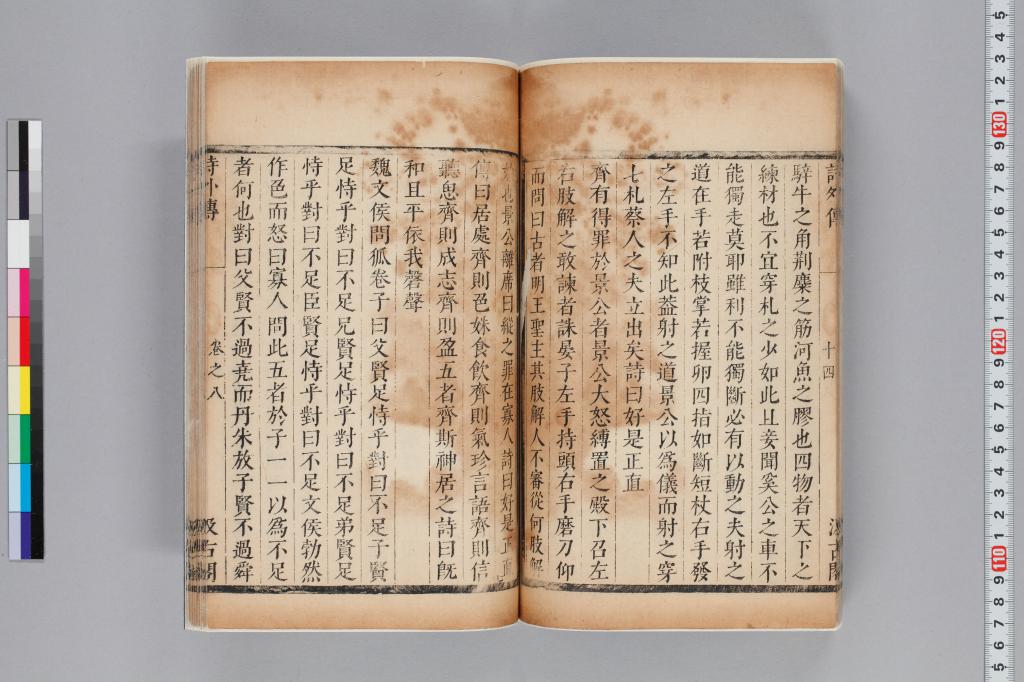 詩外傳
十四
汲古閣
騂牛之角荆麋之筋河魚之膠也四物者天下之
練材也不宜穿札之少如此且妾聞奚公之車不
能獨走莫耶雖利不能獨斷必有以動之夫射之
道在手若附枝掌若握卵四指如斷短杖右手發
之左手不知此葢射之道景公以爲儀而射之穿
七札蔡人之夫立出矣詩曰好是正直
齊有得罪於景公者景公大怒縛置之殿下召左
右肢解之敢諫者誅晏子左手持頭右手磨刀仰
而問曰古者明王聖主其肢解人不審從何肢解
始也景公離席曰縱之罪在寡人詩曰好是正直
傳曰居處齊則色姝食飲齊則氣珍言語齊則信
聽思齊則成志齊則盈五者齊斯神居之詩曰旣
和且平依我磬聲
魏文侯問狐卷子曰父賢足恃乎對曰不足子賢
足恃乎對曰不足兄賢足恃乎對曰不足弟賢足
恃乎對曰不足臣賢足恃乎對曰不足文侯勃然
作色而怒曰寡人問此五者於子一一以爲不足
者何也對曰父賢不過堯而丹朱放子賢不過舜
詩外傳
卷之八
汲古閣